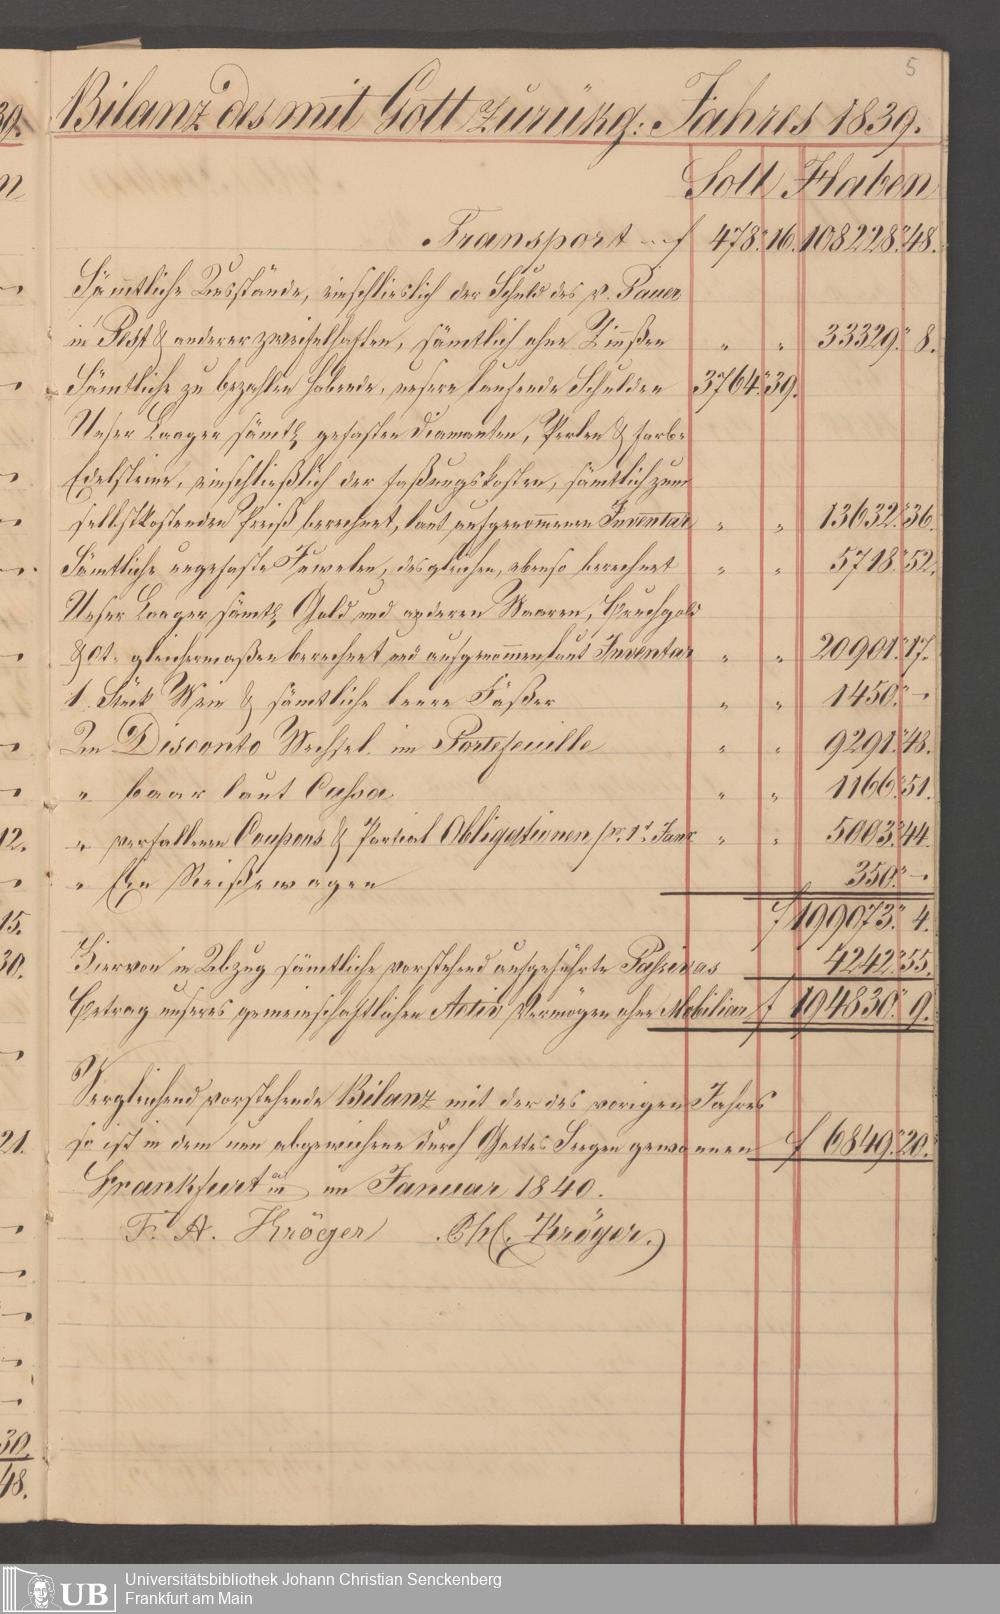 5
Bilanz des mit Gott zurükg: Jahres 1839.
Soll Haben
Transport f 478." 16. 108228." 48.
Sämtliche Ausstände, einschlieslich der Schuld des v. Bauer
in Pest & anderer zweifelhaften, sämtlich ohne Zinßen " " 33329." 8.
Sämtliche zu bezahlen habende, unsere laufende Schulden 3764." 39.
Unser Laager sämtl. gefasten Diamanten, Perlen & farb.
Edelsteine, einschließlich der Faßungskosten, sämtlich zum
selbstkostenden Preiß berechnet, laut aufgenommenen Inventar " " 13632." 36.
Sämtliche ungefaste Juwelen, desgleichen, ebenso berechnet " " 5718." 52.
Unser Laager sämtl. Gold und anderen Waaren, Bruchgold
& Ct. gleichermaßen berechnet und aufgenommen laut Inventar " " 20901." 17.
1. Stück Wein & sämtliche leere Fäßer " " 1450." –
An Disconto Wechsel im Portefeuille " " 9291." 48.
" baar laut Cassa " " 1166." 51.
" verfallenen Coupons & Partial Obligationen pr. 1r. Janr. " " 5003." 44.
" Ein Reißewagen 350." –
f 199073." 4.
Hiervon in Abzug sämtliche vorstehend aufgeführte Passivas 4242." 55.
Betrag unseres gemeinschaftlichen Activ Vermögen ohne Mobiliar f 194830." 9.
Vergleichend vorstehende Bilanz mit der des vorigen Jahres
so ist in dem nun abgewichene durch Gottes Seegen gewonnen f 6849." 20.
Frankfurt a/m im Januar 1840.
F. A. Kröger Chl. Kröger.
39.
n
12.
15.
30.
21.
30.
48.
UB
Universitätsbibliothek Johann Christian Senckenberg
Frankfurt am Main